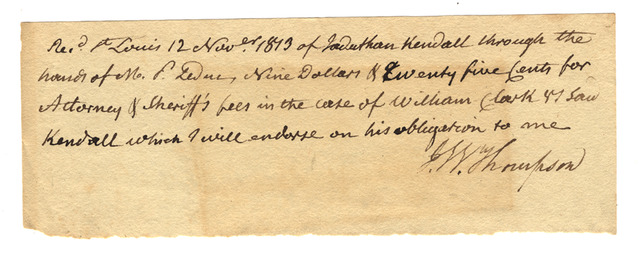 Rec.d St Louis 12 Nov.er 1813 of Jaduthan Kendall through the
hands of M. P. Leduc, Nine Dollars & Twenty five Cents for
Attorney & Sheriff's fees in the case of William Clark vs said
Kendall which I will endorse on his obligation to me
J. Wm Thompson